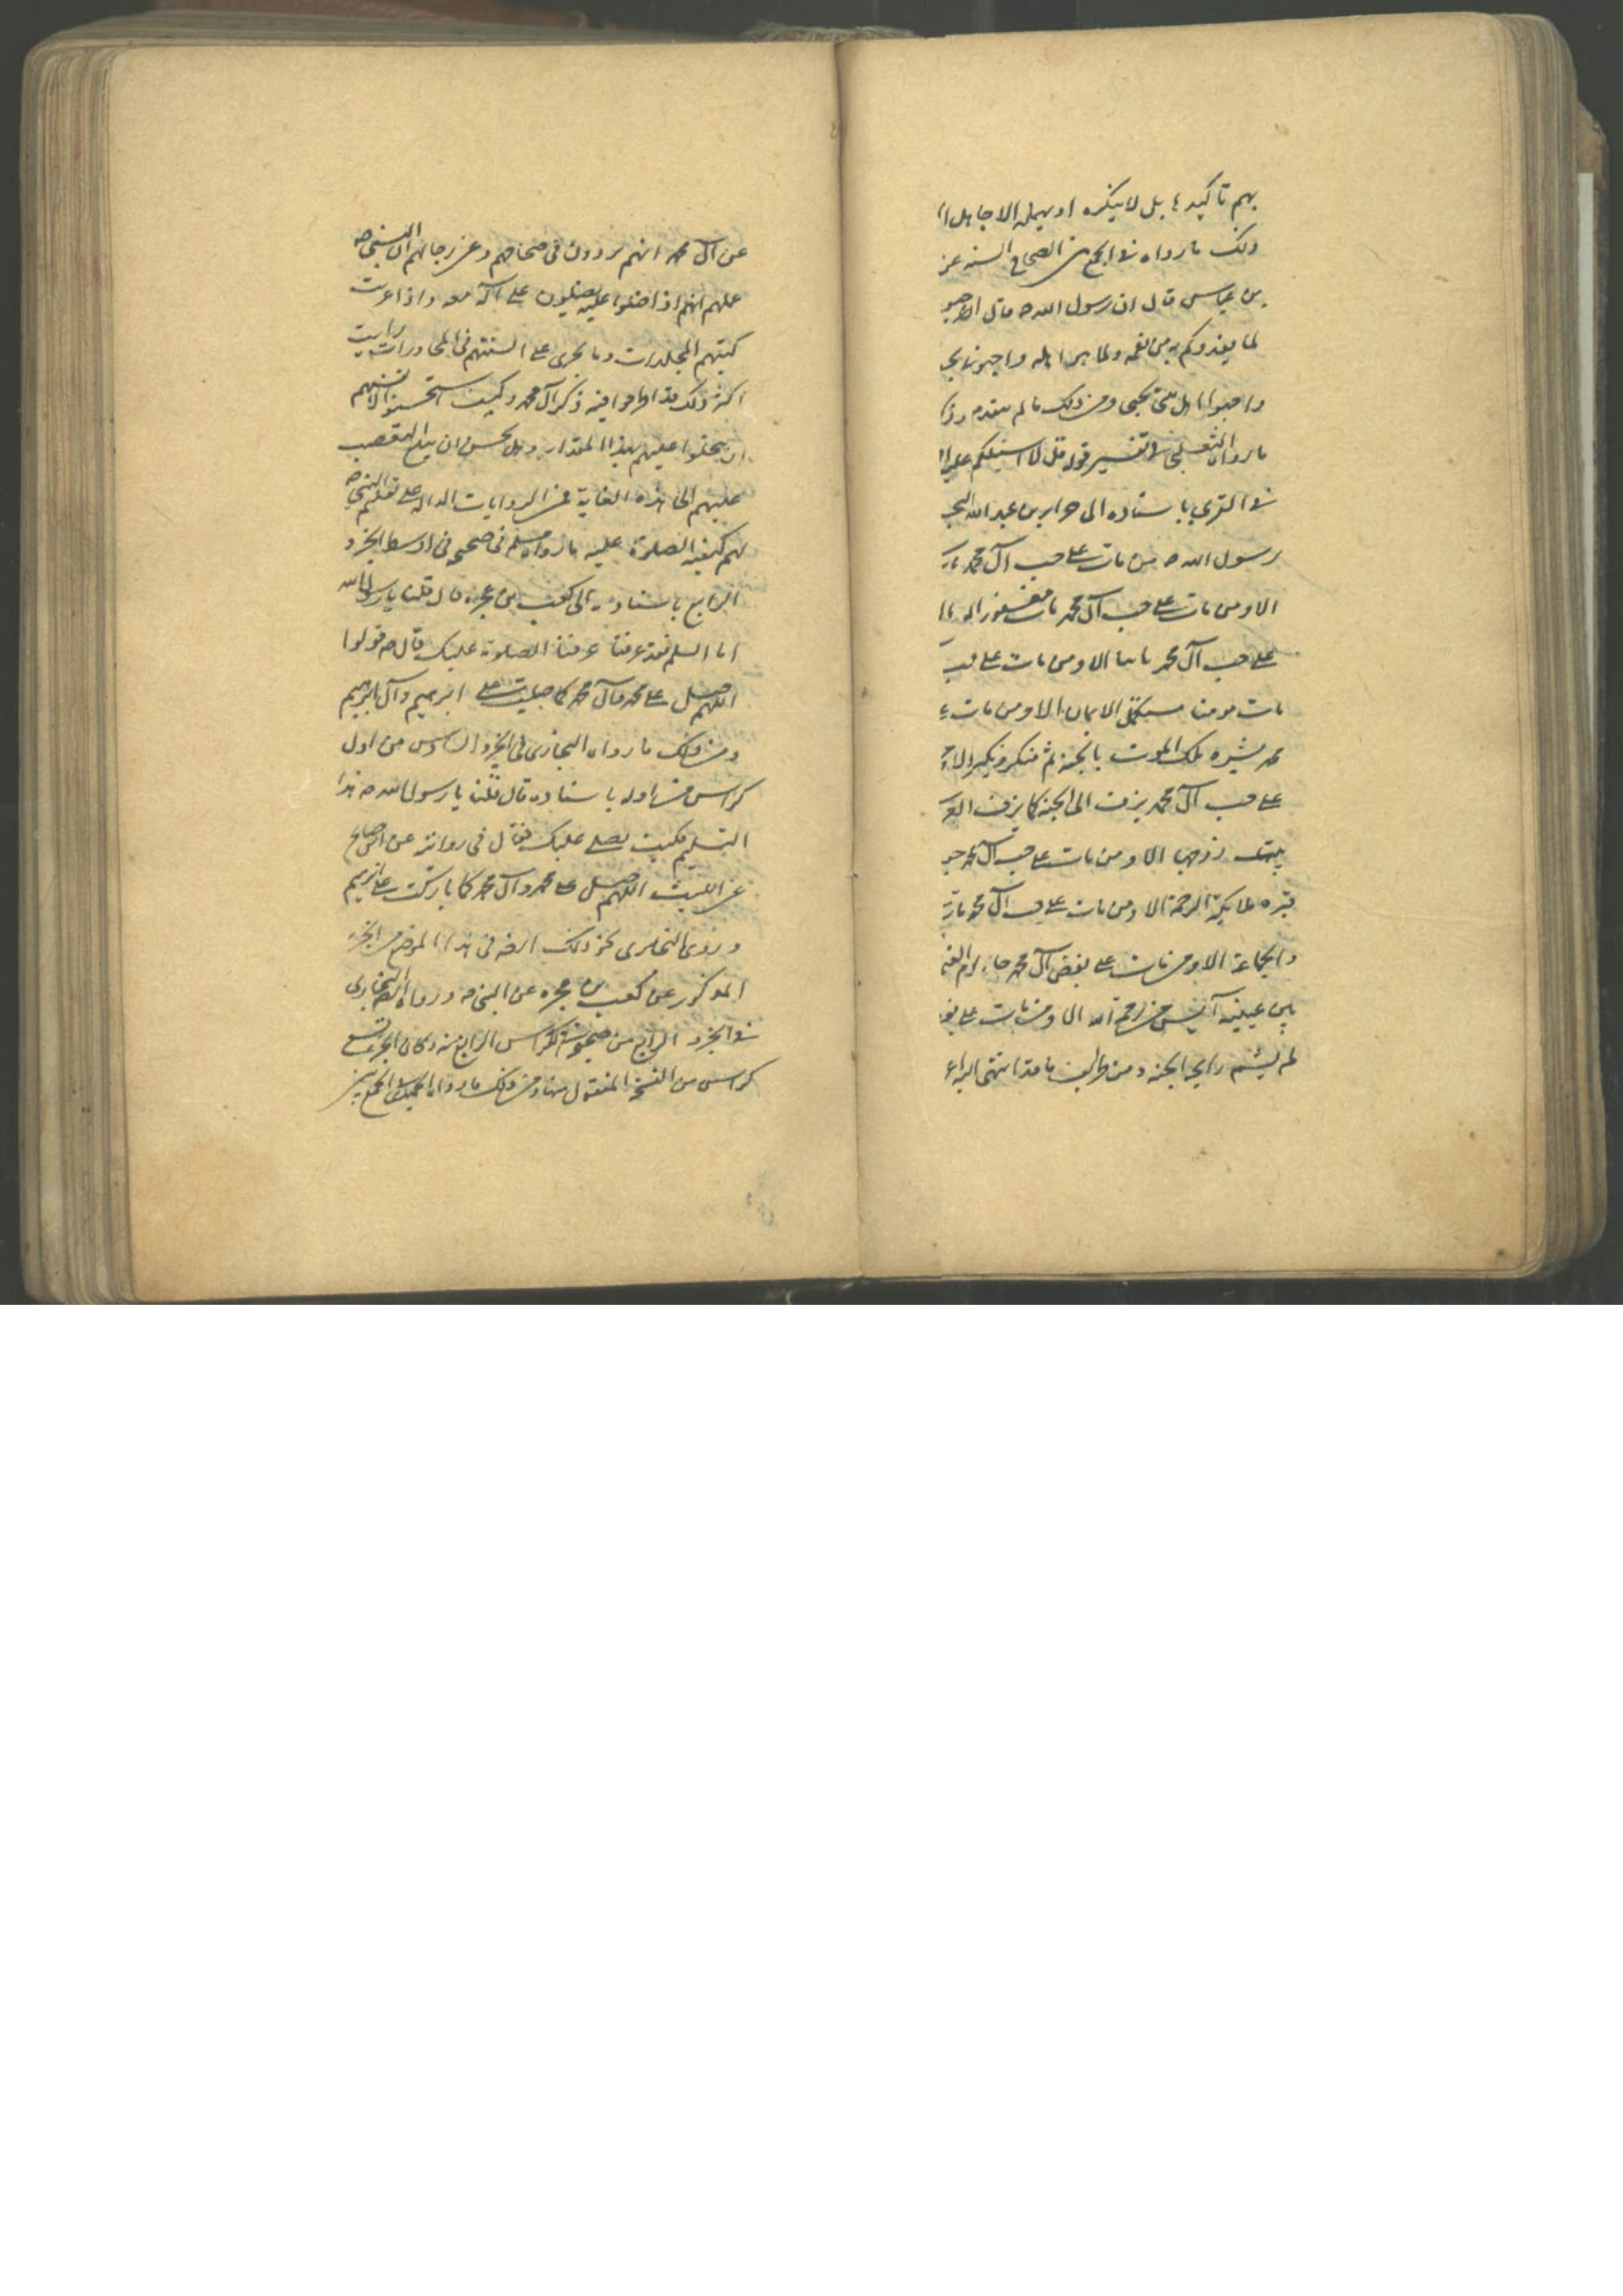 بهم تاكيدا بل لا ينكره او يهمله الا جاهل
ذلك ما رواه في الجمع بين الصحاح السته عن
بن عباس قال ان رسول الله ص قال احبو
لما يغذوكم به من نعمه ولما هو اهله واحبوني بحب
واحبوا اهل بيتي بحبي ومن ذلك ما لم يتقدم
ما رواه الثعلبي في تفسير قوله قل لا اسئلكم عليه
في القربى باسناده الى جرير بن عبد الله البجـ
رسول الله ص من مات على حب آل محمد مات
الا ومن مات على حب آل محمد مات مغفورا له
على حب آل محمد مات تايبا الا ومن مات على حب
مات مومنا مستكمل الايمان الا ومن مات
محمد بشره ملك الموت بالجنة ثم منكر ونكير الا
على حب آل محمد يزف الى الجنة كما يزف العر
بيت زوجها الا ومن مات على حب آل محمد جعـ
قبره ملائكة الرحمة الا ومن مات على حب آل محمد مات
والجماعة الا ومن مات على بغض آل محمد جاء يوم القيـ
بين عينيه آيس من رحمة الله الا ومن مات على بغض
لم يشم رايحة الجنة ومن طرايف ما قد انتهى اليه
عن آل محمد انهم يروون في صحاحهم وعن رجالهم ان النبي ص
علمهم انهم اذا صلوا عليه يصلون على آله معه واذا اعتبرت
كتبهم المجلدات وما يجرى على السنتهم في المحاورات رايت
اكثر ذلك قد اطرحوا فيه ذكر آل محمد وكيف استحسنوا لانفسهم
ان يبخلوا عليهم بهذا المقدار وهل يحسن ان يبلغ التعصب
عليهم الى هذه الغاية فمن الروايات الدالة على تعليم النبي ص
لهم كيفية الصلوة عليه ما رواه مسلم في صحيحه في اوسط الجزء
الرابع باسناده الى كعب بن عجره قال قلنا يا رسول الله
اما السلم فقد عرفنا عرفنا الصلوة عليك قال ص قولوا
اللهم صل على محمد وآل محمد كما صليت على ابرهيم وآل ابرهيم
ومن ذلك ما رواه البخارى في الجزء السادس من اول
كراس من اوله باسناده قال قلنا يا رسول الله ص هذا
التسليم فكيف نصلى عليك فقال في روايته عن ابي صالح
عن الليث اللهم صل على محمد وآل محمد كما باركت على ابرهيم
وروى البخارى نحو ذلك ايضا في هذا الموضع من الجزء
المذكور عن كعب بن عجره عن النبي ص ورواه ايضا البخارى
في الجزء الرابع من صحيحه في الكراس الرابع منه وكان الجزء تسع
كراس من النسخة المنقول منها ومن ذلك ما رواه الحميدى في الجمع بين